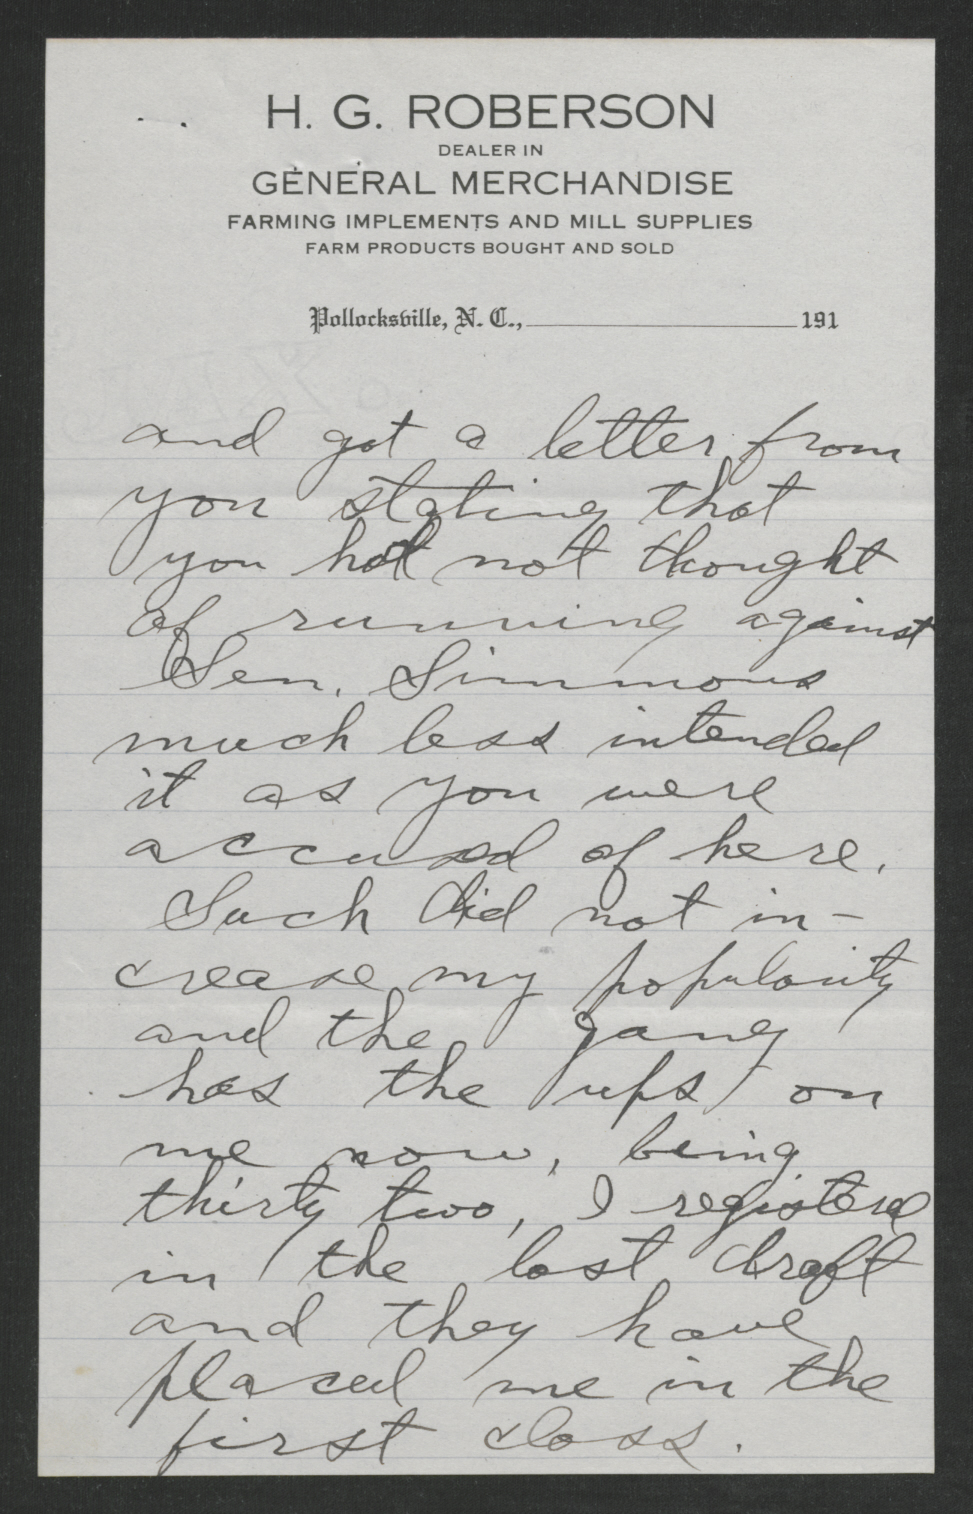 H. G. ROBERSON
DEALER IN
GENERAL MERCHANDISE
FARMING IMPLEMENTS AND MILL SUPPLIES
FARM PRODUCTS BOUGHT AND SOLD
Pollocksville, N. C., 191
and got a letter from
you stating that
you had not thought
of running against
Sen. Simmons
much less intended
it as you were
accused of here.
Such did not in-
crease my popularity
and the gang
has the ups on
me now, being
thirty two, I registered
in the last draft
and they have
placed me in the
first class.